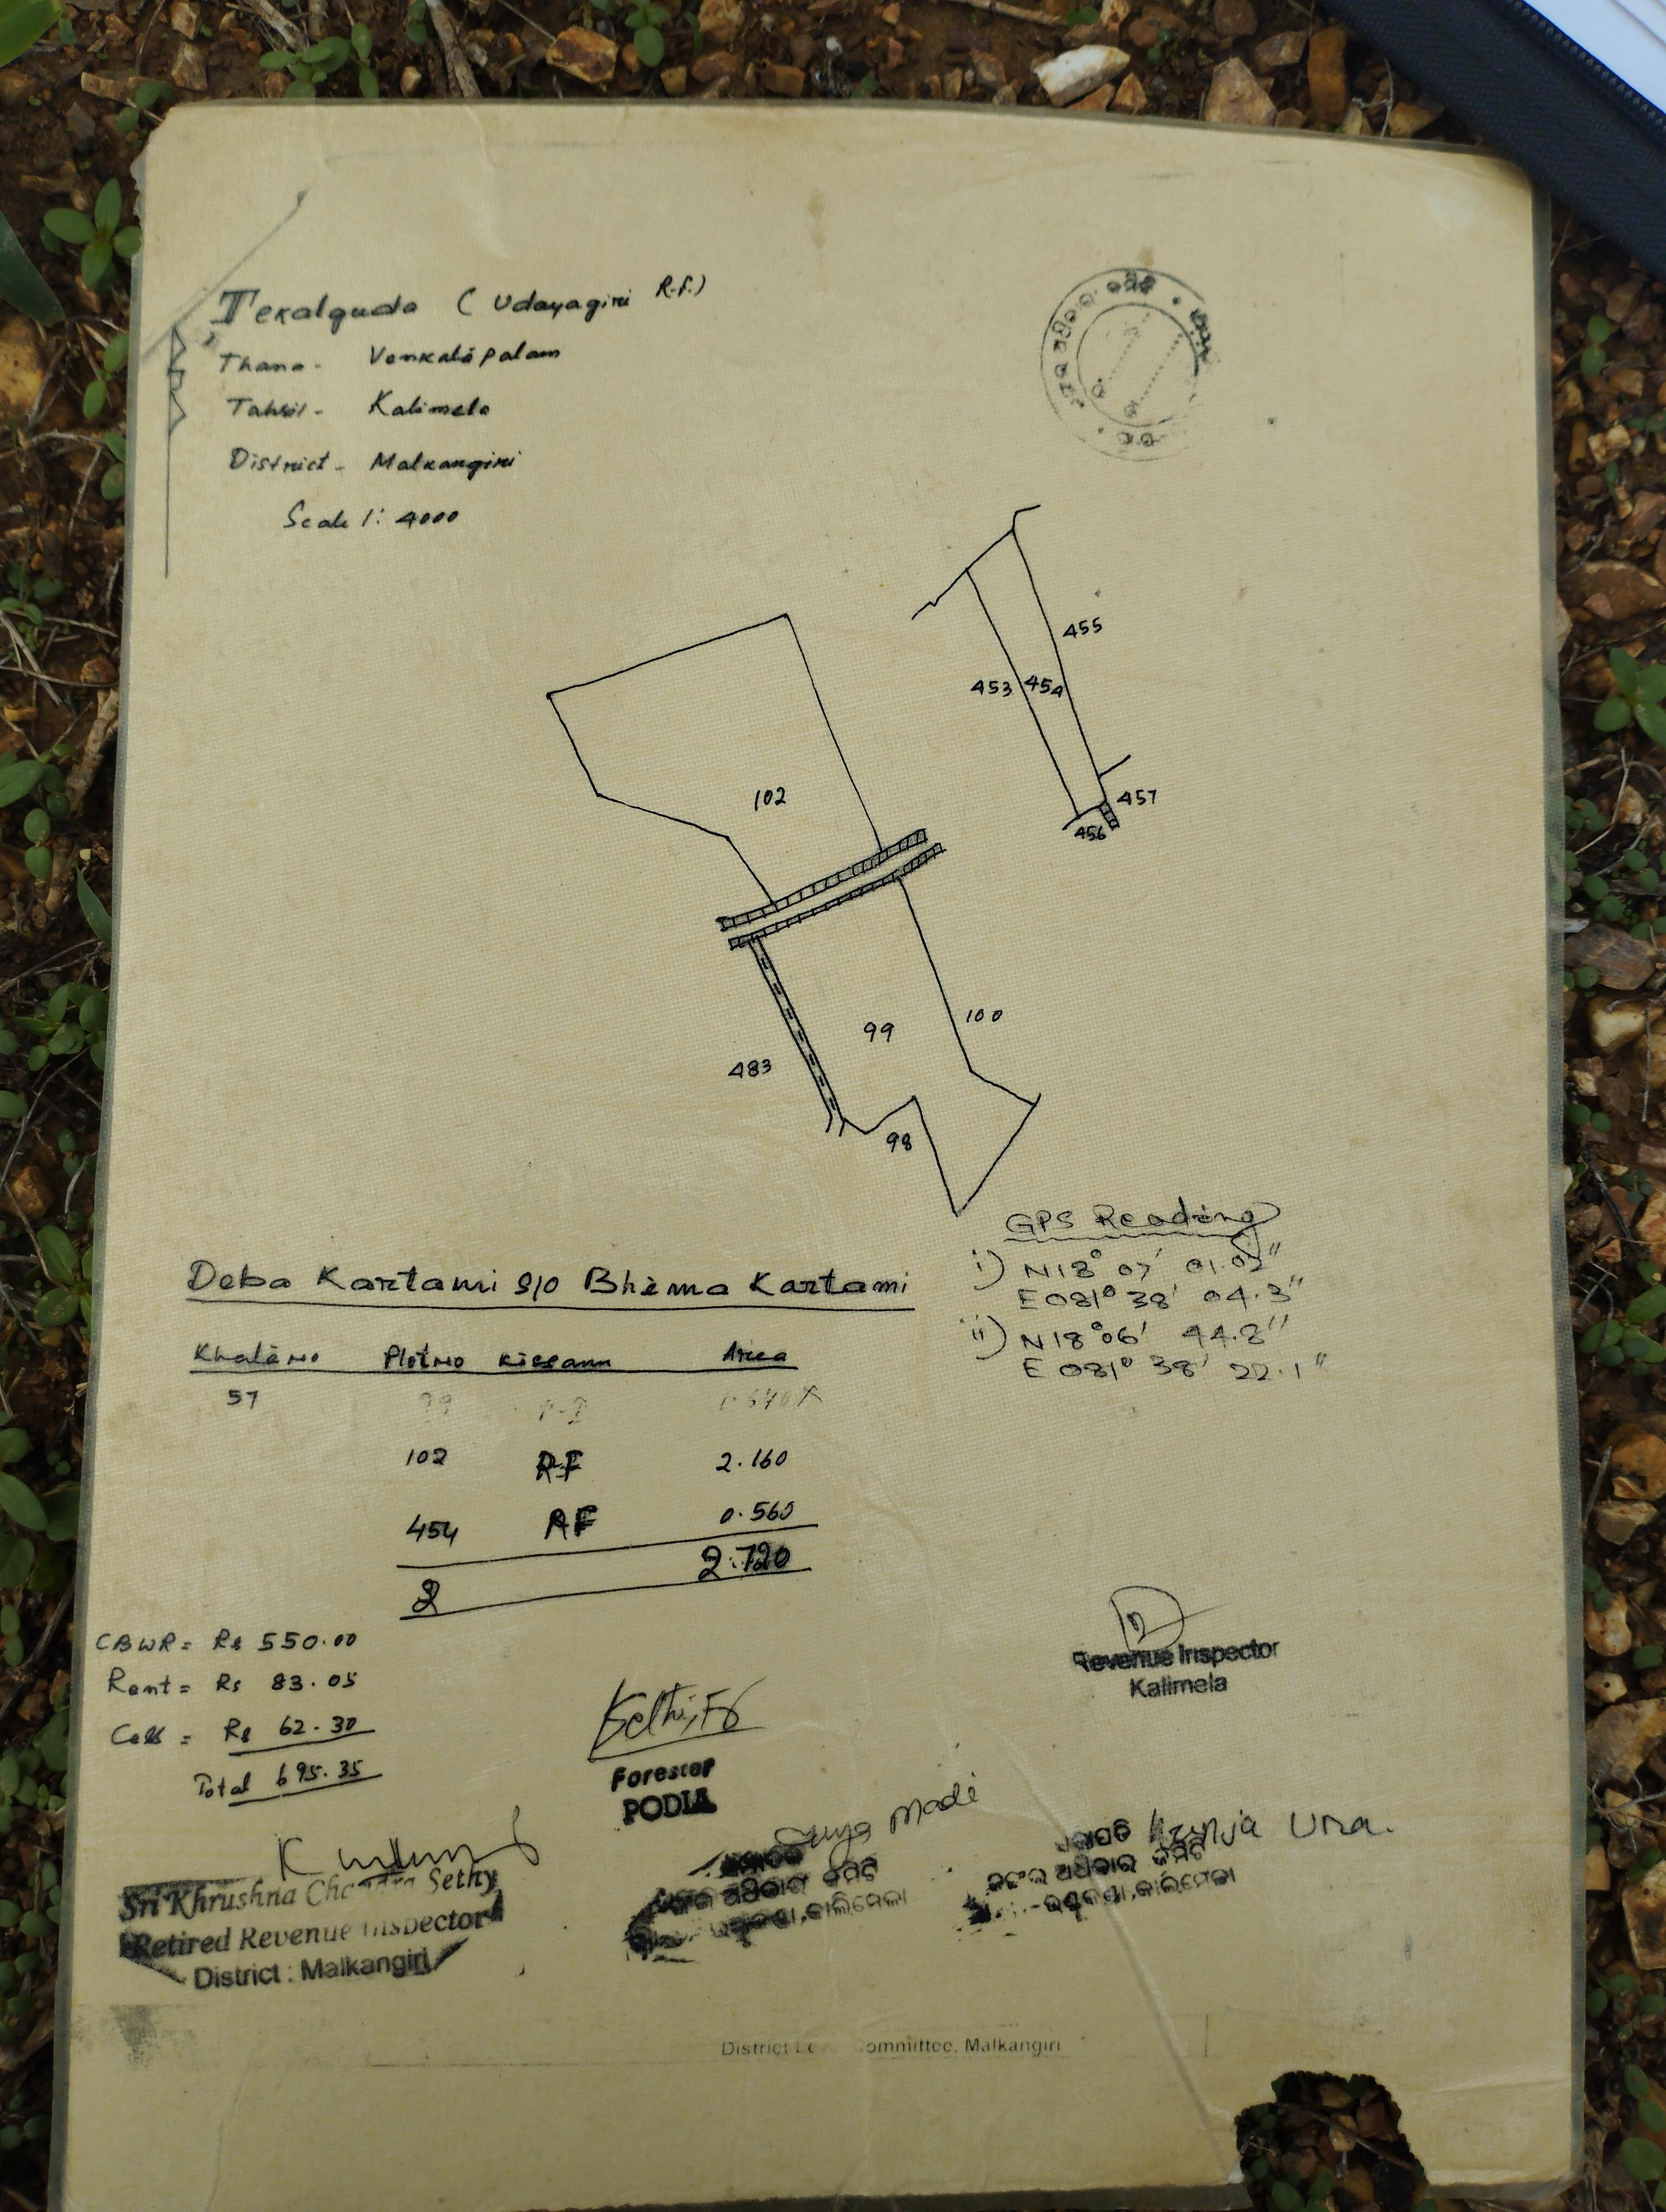 Tekalguda (Udayagiri R.F.)
Thana - Venkatapalam
Tahsil - Kalimela
District - Malkangiri
Scale 1: 4000
455
453 454
102
457
456
99
100
483
98
GPS Reading
i) N18° 07' 01.02"
E 081° 38' 04.3"
ii) N18° 06' 44.8"
E 081° 38' 22.1"
Deba Kartami S/o Bhima Kartami
Khata No Plot No Kissam Area
57
102 RF 2.160
454 RF 0.560
2 2.720
CBWR = Rs 550.00
Rent = Rs 83.05
Cess = Rs 62.30
Total 695.35
Revenue Inspector
Kalimela
Forester
PODIA
Madi
Sri Khrushna Chandra Sethy
Retired Revenue Inspector
District : Malkangiri
ଜଙ୍ଗଲ ଅଧିକାର କମିଟି
କାଲିମେଳା
ସଭାପତି Unga Ura.
ଜଙ୍ଗଲ ଅଧିକାର କମିଟି
କାଲିମେଳା
District Committee, Malkangiri